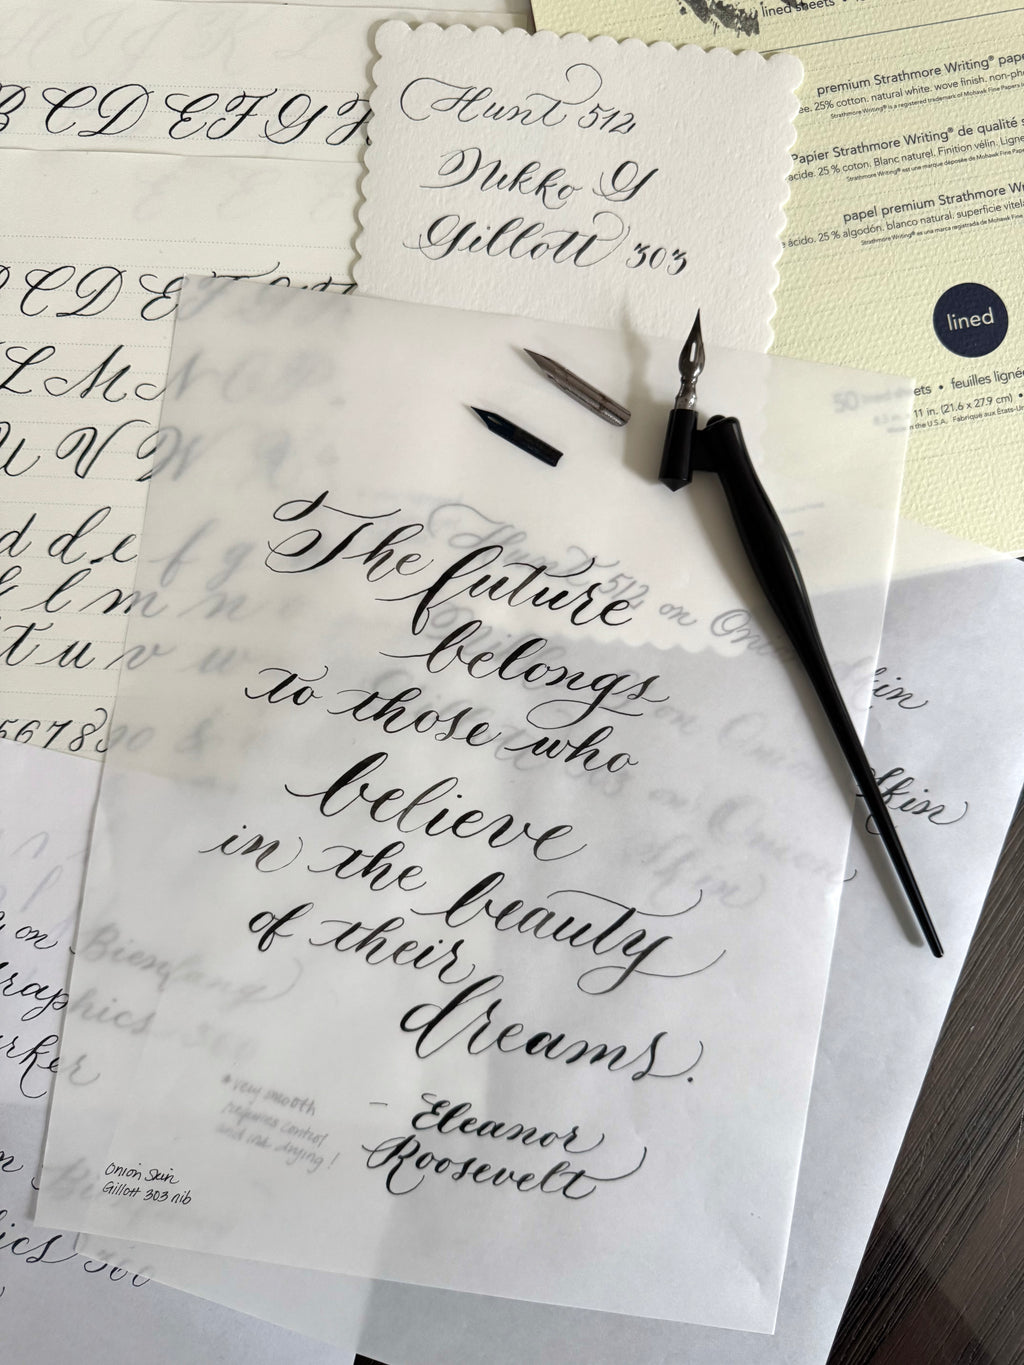 lined sheets
premium Strathmore Writing® pape
ee. 25% cotton. natural white. wove finish. non-pho
Strathmore Writing® is a registered trademark of Mohawk Fine Papers
Papier Strathmore Writing® de qualité s
acide. 25 % coton. Blanc naturel. Finition vélin. Ligne
Strathmore Writing® est une marque déposée de Mohawk Fine Pape
papel premium Strathmore Wr
e ácido. 25 % algodón. blanco natural. superficie vitela
Strathmore Writing® es una marca registrada de Mohawk Fine
lined
50 lined sheets • feuilles ligné
11 in. (21.6 x 27.9 cm) •
in the U.S.A. Fabriqué aux États-Un
B C D E F G H
Hunt 512
Nikko G
Gillott 303
C D E F
L M N
U V W
d d e f g
k l m n
t u v w
5 6 7 8 9 0 &
The future
belongs
to those who
believe
in the beauty
of their
dreams.
- Eleanor
Roosevelt
Onion Skin
Gillott 303 nib
* very smooth
requires control
and ink drying!
Hunt 512 on Onion Skin
on Onion Skin
on Onion Skin
on Bienfang
Graphics 360
Marker
Graphics 360